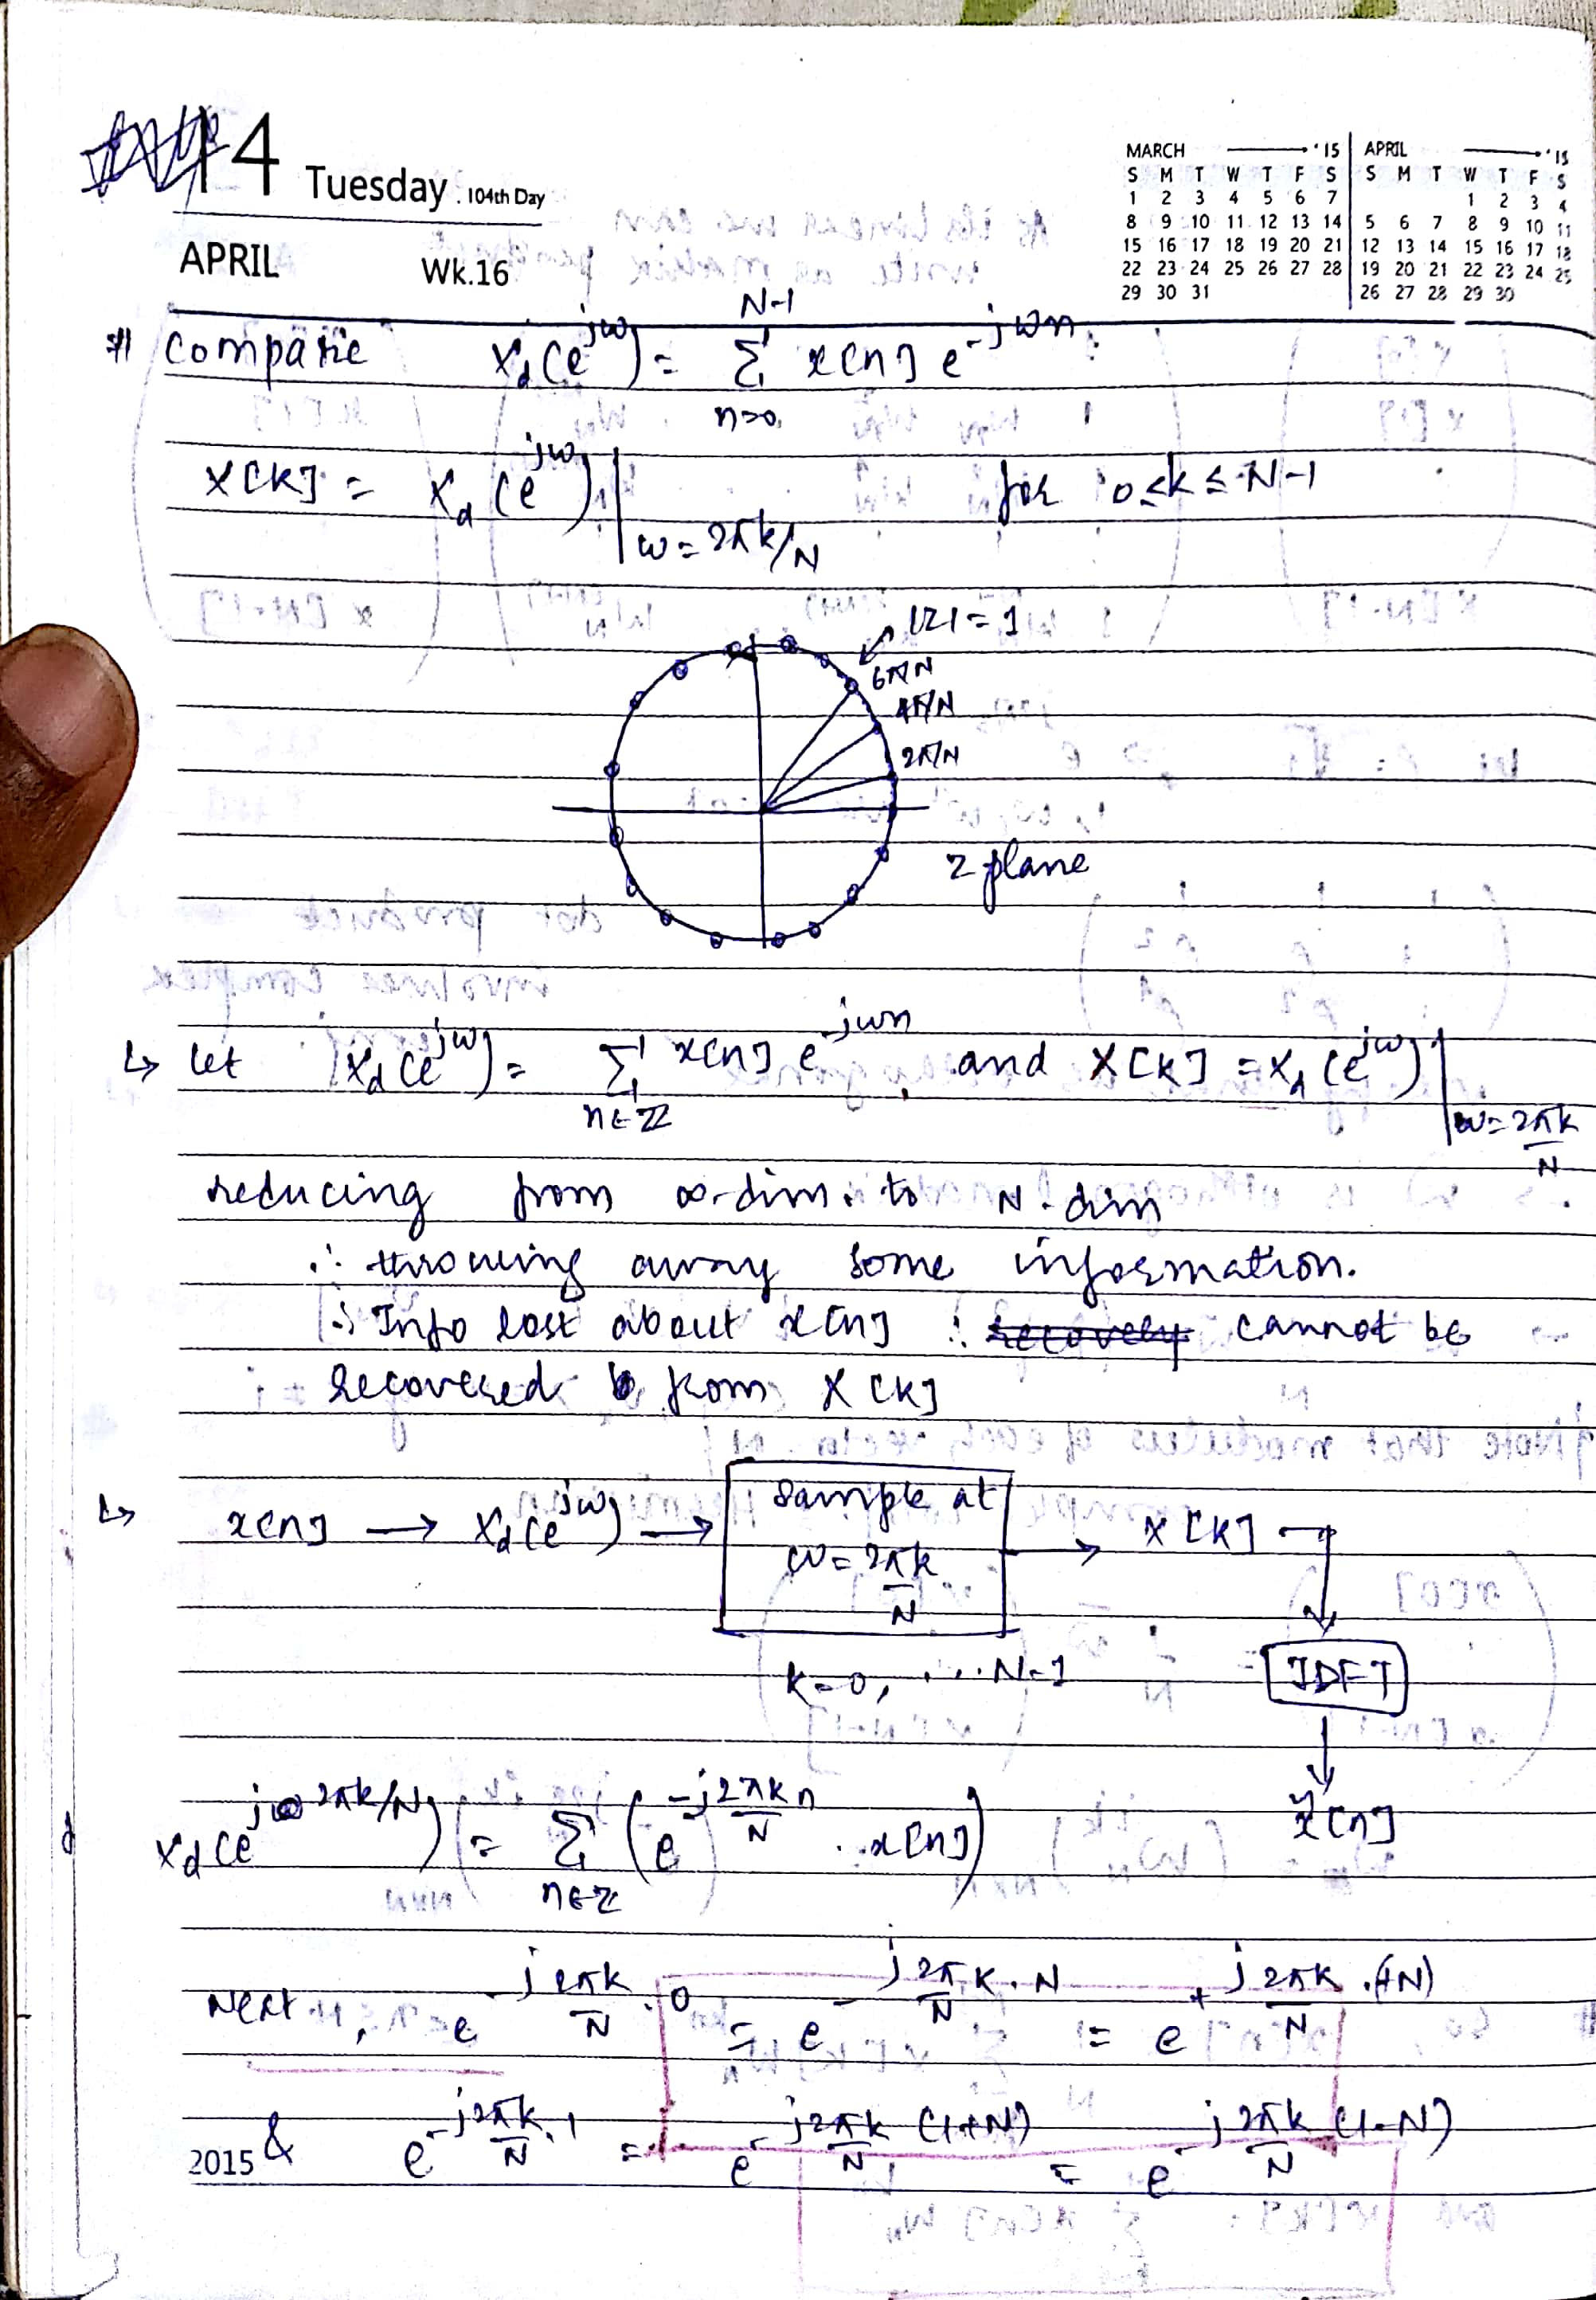 14 Tuesday . 104th Day
APRIL Wk.16
MARCH '15
S M T W T F S
1 2 3 4 5 6 7
8 9 10 11 12 13 14
15 16 17 18 19 20 21
22 23 24 25 26 27 28
29 30 31
APRIL '15
S M T W T F S
1 2 3 4
5 6 7 8 9 10 11
12 13 14 15 16 17 18
19 20 21 22 23 24 25
26 27 28 29 30
# Compare X_d(e^{jω}) = Σ_{n=0}^{N-1} x[n] e^{-jωn}
X[k] = X_d(e^{jω}) |_{ω=2πk/N} for 0≤k≤N-1
|z|=1
6π/N
4π/N
2π/N
z plane
↳ let X_d(e^{jω}) = Σ_{n∈ℤ} x[n] e^{-jωn}, and X[k] = X_d(e^{jω}) |_{ω=2πk/N}
reducing from ∞-dim. to N-dim
∴ throwing away some information.
∴ Info lost about x[n] ∴ recovery cannot be
recovered from X[k]
↳ x[n] → X_d(e^{jω}) → Sample at ω=2πk/N → X[k]
k=0, ...N-1
IDFT
x̃[n]
X_d(e^{j2πk/N}) = Σ_{n∈ℤ} (e^{-j2πkn/N} . x[n])
Next, e^{-j2πk/N . 0} = e^{-j2πk/N . N} = e^{+j2πk/N .(+N)}
& e^{-j2πk/N . 1} = e^{-j2πk/N (1+N)} = e^{-j2πk/N (1-N)}
2015